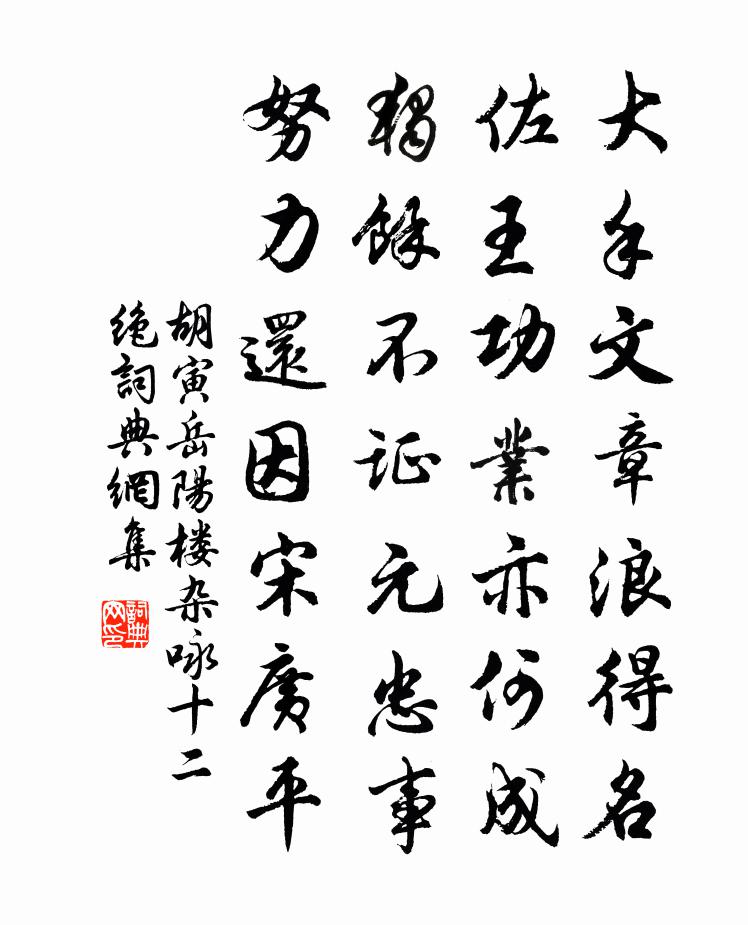 大手文章浪得名
佐王功業亦何成
獨餘不证元忠事
努力還因宋廣平
胡寅岳陽楼杂咏十二
绝詞典網集
詞典
网印